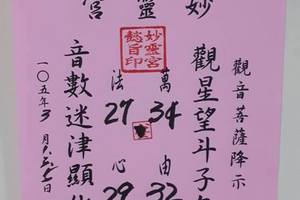 妙靈宮
觀音菩薩降示
觀星望斗子
萬 34 由 32
妙靈宮
懿旨印
法 27 心 29
音數迷津顯
一〇五年3月
日